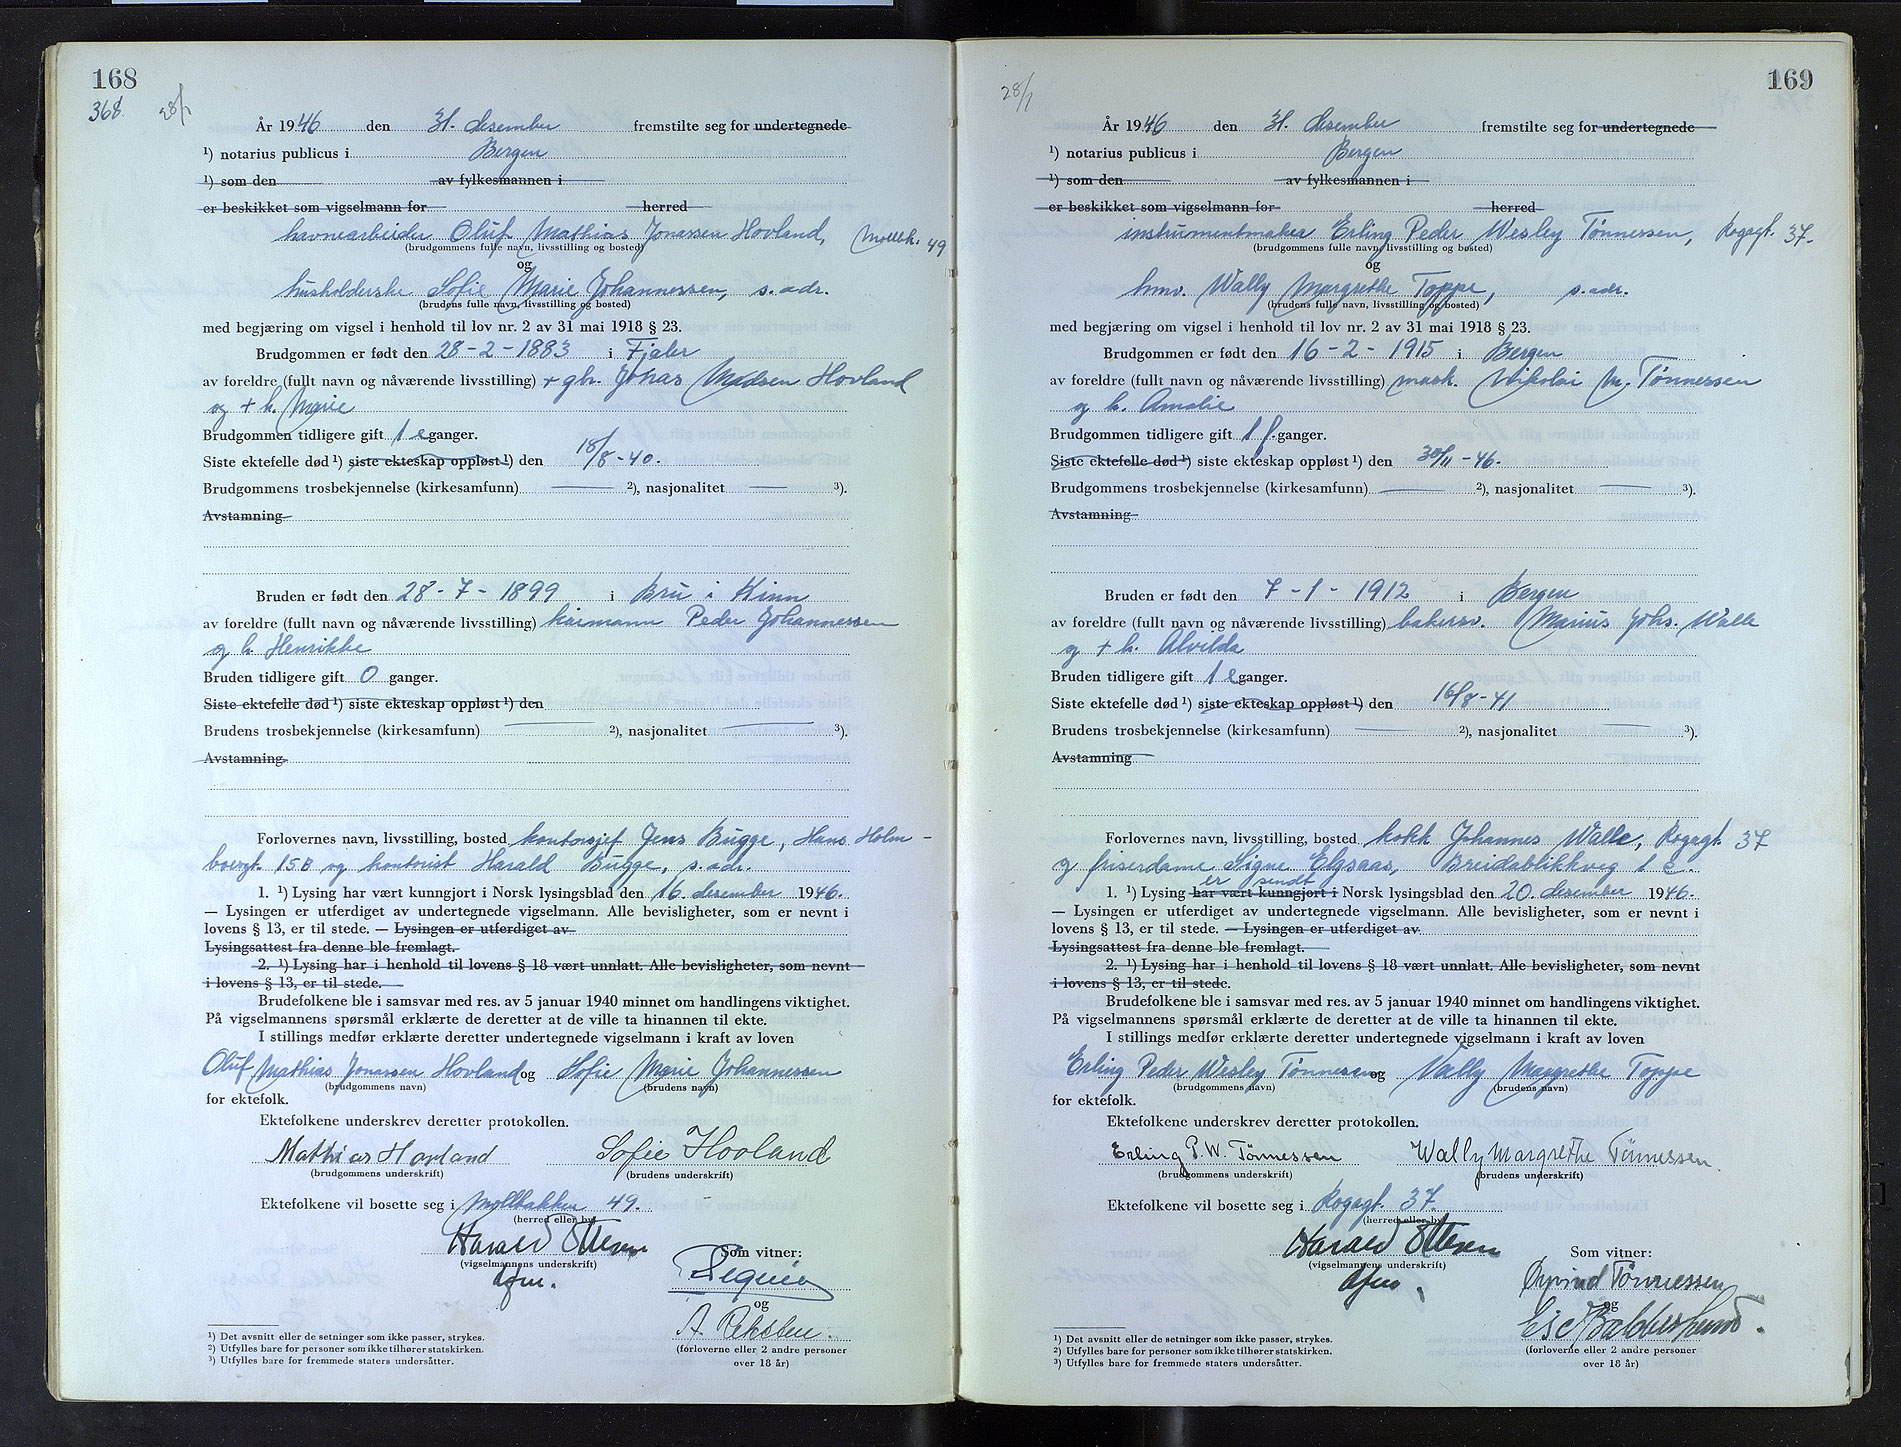 168
368
28/1
År 1946 den 31. desember fremstilte seg for undertegnede
¹) notarius publicus i Bergen
¹) som den av fylkesmannen i
er beskikket som vigselmann for herred
havnearbeider Oluf Mathias Jonassen Hovland, Mollbk. 49
(brudgommens fulle navn, livsstilling og bosted)
og
husholderske Sofie Marie Johannessen, s. adr.
(brudens fulle navn, livsstilling og bosted)
med begjæring om vigsel i henhold til lov nr. 2 av 31 mai 1918 § 23.
Brudgommen er født den 28-2-1883 i Fjaler
av foreldre (fullt navn og nåværende livsstilling) + gbr. Jonas Madsen Hovland
og + h. Marie
Brudgommen tidligere gift 1 e ganger.
Siste ektefelle død ¹) siste ekteskap oppløst ¹) den 18/8-40.
Brudgommens trosbekjennelse (kirkesamfunn) — ²), nasjonalitet — ³).
Avstamning
Bruden er født den 28-7-1899 i Bru i Kinn
av foreldre (fullt navn og nåværende livsstilling) kårmann Peder Johannessen
og h. Henrikke
Bruden tidligere gift 0 ganger.
Siste ektefelle død ¹) siste ekteskap oppløst ¹) den
Brudens trosbekjennelse (kirkesamfunn) — ²), nasjonalitet — ³).
Avstamning
Forlovernes navn, livsstilling, bosted kontorsjef Jens Bugge, Hans Holm-
boesgt. 15B og kontorist Harald Bugge, s. adr.
1. ¹) Lysing har vært kunngjort i Norsk lysingsblad den 16. desember 1946.
— Lysingen er utferdiget av undertegnede vigselmann. Alle bevisligheter, som er nevnt i
lovens § 13, er til stede. — Lysingen er utferdiget av
Lysingsattest fra denne ble fremlagt.
2. ¹) Lysing har i henhold til lovens § 18 vært unnlatt. Alle bevisligheter, som nevnt
i lovens § 13, er til stede.
Brudefolkene ble i samsvar med res. av 5 januar 1940 minnet om handlingens viktighet.
På vigselmannens spørsmål erklærte de deretter at de ville ta hinannen til ekte.
I stillings medfør erklærte deretter undertegnede vigselmann i kraft av loven
Oluf Mathias Jonassen Hovland og Sofie Marie Johannessen
(brudgommens navn) (brudens navn)
for ektefolk.
Ektefolkene underskrev deretter protokollen.
Mathias Hovland Sofie Hovland
(brudgommens underskrift) (brudens underskrift)
Ektefolkene vil bosette seg i Mollbakken 49.
(herred eller by)
Harald Ottesen
Som vitner:
(vigselmannens underskrift)
og
(forloverne eller 2 andre personer
over 18 år)
¹) Det avsnitt eller de setninger som ikke passer, strykes.
²) Utfylles bare for personer som ikke tilhører statskirken.
³) Utfylles bare for fremmede staters undersåtter.
169
28/1
År 1946 den 31. desember fremstilte seg for undertegnede
¹) notarius publicus i Bergen
¹) som den av fylkesmannen i
er beskikket som vigselmann for herred
instrumentmaker Erling Peder Wesley Tønnessen, Kogegt. 37.
(brudgommens fulle navn, livsstilling og bosted)
og
hmv. Wally Margrethe Toppe, s. adr.
(brudens fulle navn, livsstilling og bosted)
med begjæring om vigsel i henhold til lov nr. 2 av 31 mai 1918 § 23.
Brudgommen er født den 16-2-1915 i Bergen
av foreldre (fullt navn og nåværende livsstilling) mask. Nikolai M. Tønnessen
og h. Amalie
Brudgommen tidligere gift 1 f. ganger.
Siste ektefelle død ¹) siste ekteskap oppløst ¹) den 30/11-46.
Brudgommens trosbekjennelse (kirkesamfunn) — ²), nasjonalitet — ³).
Avstamning
Bruden er født den 7-1-1912 i Bergen
av foreldre (fullt navn og nåværende livsstilling) bakersv. Marius Johs. Walle
og + h. Alvilda
Bruden tidligere gift 1 e ganger.
Siste ektefelle død ¹) siste ekteskap oppløst ¹) den 16/8-41
Brudens trosbekjennelse (kirkesamfunn) — ²), nasjonalitet — ³).
Avstamning
Forlovernes navn, livsstilling, bosted kokk Johannes Walle, Kogegt. 37
og friserdame Signe Elgsaas, Breidablikkveg 1 c.
er sendt
1. ¹) Lysing har vært kunngjort i Norsk lysingsblad den 20. desember 1946.
— Lysingen er utferdiget av undertegnede vigselmann. Alle bevisligheter, som er nevnt i
lovens § 13, er til stede. — Lysingen er utferdiget av
Lysingsattest fra denne ble fremlagt.
2. ¹) Lysing har i henhold til lovens § 18 vært unnlatt. Alle bevisligheter, som nevnt
i lovens § 13, er til stede.
Brudefolkene ble i samsvar med res. av 5 januar 1940 minnet om handlingens viktighet.
På vigselmannens spørsmål erklærte de deretter at de ville ta hinannen til ekte.
I stillings medfør erklærte deretter undertegnede vigselmann i kraft av loven
Erling Peder Wesley Tønnesen og Wally Margrethe Toppe
(brudgommens navn) (brudens navn)
for ektefolk.
Ektefolkene underskrev deretter protokollen.
Erling P. W. Tønnessen Wally Margrethe Tønnessen.
(brudgommens underskrift) (brudens underskrift)
Ektefolkene vil bosette seg i Kogegt. 37.
(herred eller by)
Harald Ottesen
Som vitner:
(vigselmannens underskrift)
Øyvind Tønnessen
og
(forloverne eller 2 andre personer
over 18 år)
¹) Det avsnitt eller de setninger som ikke passer, strykes.
²) Utfylles bare for personer som ikke tilhører statskirken.
³) Utfylles bare for fremmede staters undersåtter.